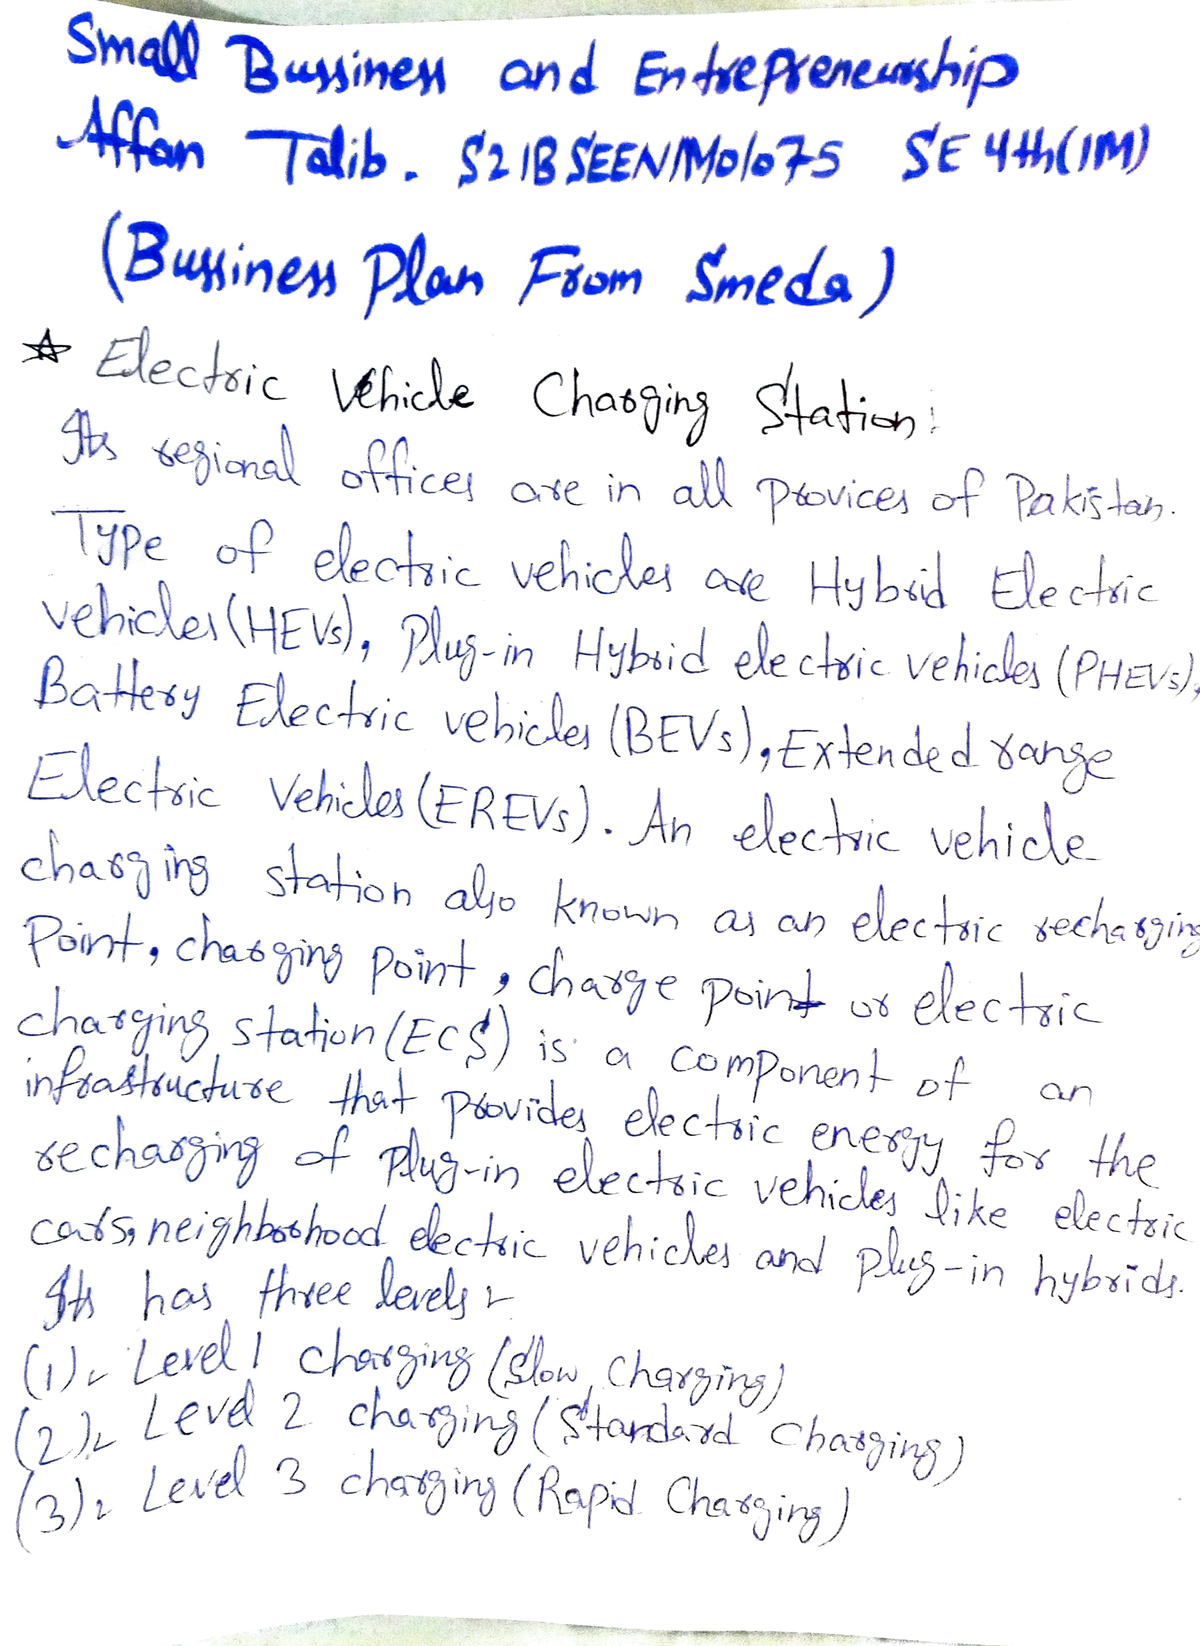 Small Bussiness and Entrepreneurship
Affan Talib. S21BSEEN1M01075 SE 4th(1M)
(Bussiness Plan From Smeda)
☆ Electric Vehicle Charging Station:
Its regional offices are in all provices of Pakistan.
Type of electric vehicles are Hybrid Electric
vehicles (HEVs), Plug-in Hybrid electric vehicles (PHEVs),
Battery Electric vehicles (BEVs), Extended range
Electric Vehicles (EREVs). An electric vehicle
charging station also known as an electric recharging
Point, charging point, charge point or electric
charging station (ECS) is a component of an
infrastructure that provides electric energy for the
recharging of plug-in electric vehicles like electric
cars, neighborhood electric vehicles and plug-in hybrids.
Its has three levels:-
(1):- Level 1 charging (Slow Charging)
(2):- Level 2 charging (Standard Charging)
(3):- Level 3 charging (Rapid Charging)